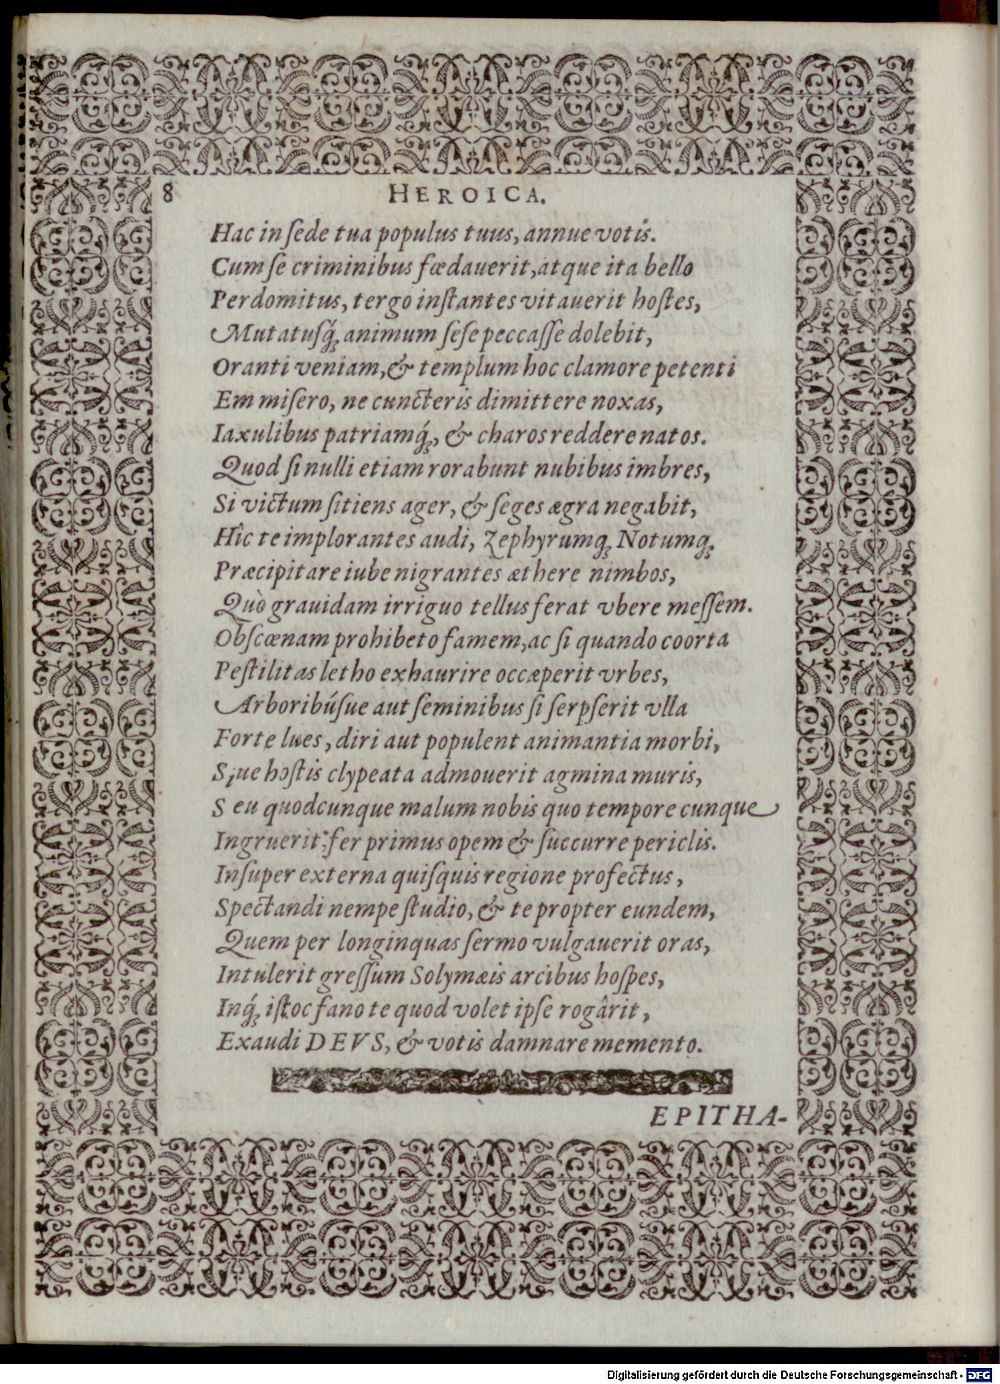 8 HEROICA.
Hac in ſede tua populus tuus, annue votis.
Cum ſe criminibus fœdauerit, atque ita bello
Perdomitus, tergo inſtantes vitauerit hoſtes,
Mutatuſq́; animum ſeſe peccaſſe dolebit,
Oranti veniam, & templum hoc clamore petenti
Em miſero, ne cuncteris dimittere noxas,
Iaxulibus patriamq́;, & charos reddere natos.
Quod ſi nulli etiam rorabunt nubibus imbres,
Si victum ſitiens ager, & ſeges ægra negabit,
Hîc te implorantes audi, Zephyrumq; Notumq;
Præcipitare iube nigrantes æthere nimbos,
Quò grauidam irriguo tellus ferat vbere meſſem.
Obſcœnam prohibeto famem, ac ſi quando coorta
Peſtilitas letho exhaurire occæperit vrbes,
Arboribúſue aut ſeminibus ſi ſerpſerit vlla
Forte lues, diri aut populent animantia morbi,
Siue hoſtis clypeata admouerit agmina muris,
Seu quodcunque malum nobis quo tempore cunque
Ingruerit: fer primus opem & ſuccurre periclis.
Inſuper externa quiſquis regione profectus,
Spectandi nempe ſtudio, & te propter eundem,
Quem per longinquas ſermo vulgauerit oras,
Intulerit greſſum Solymæis arcibus hoſpes,
Inq́; iſtoc fano te quod volet ipſe rogârit,
Exaudi DEVS, & votis damnare memento.
EPITHA-
Digitalisierung gefördert durch die Deutsche Forschungsgemeinschaft - DFG